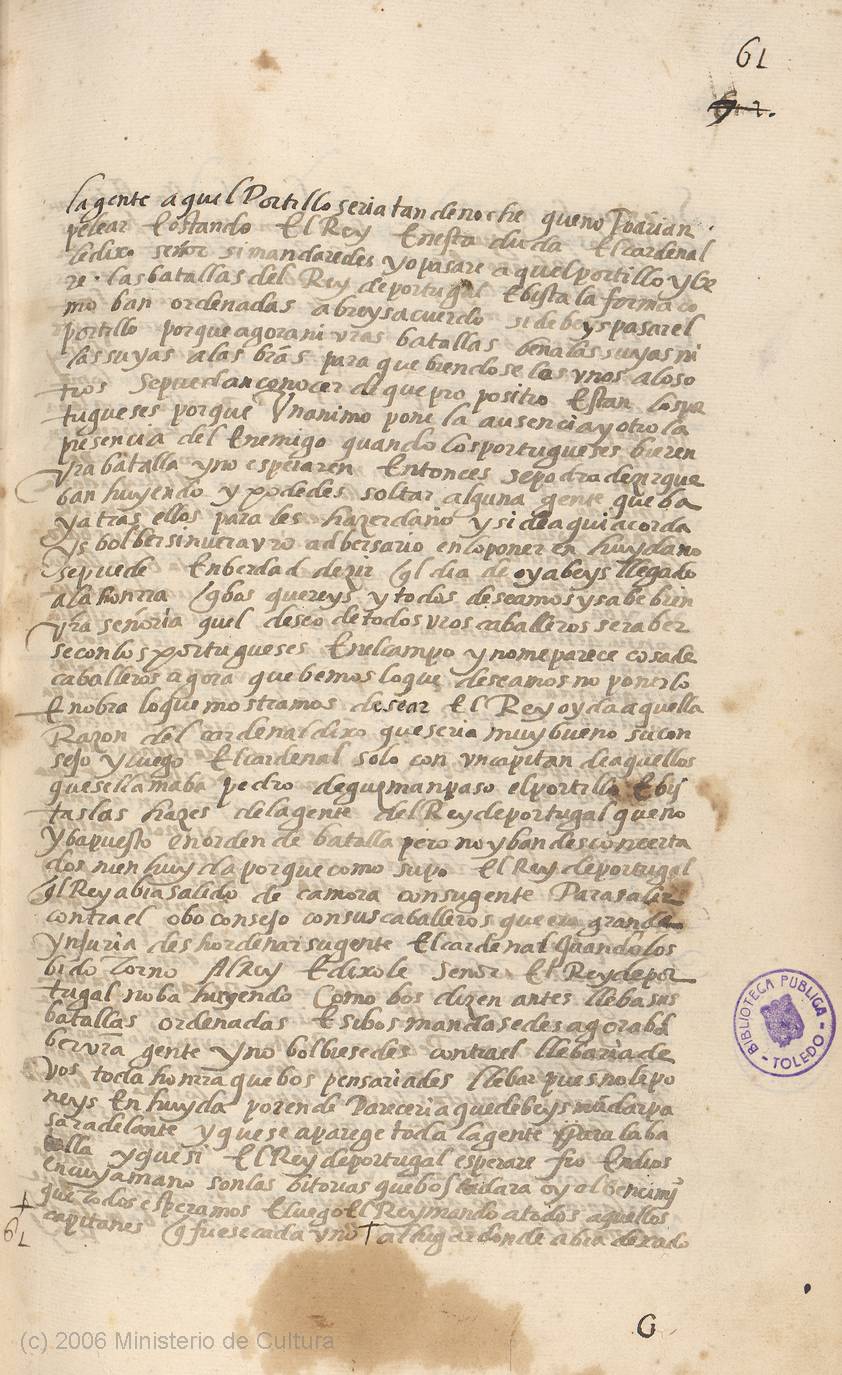 61
la gente aquel Portillo seria tan de noche que no Podrian
pelear E estando El Rey En esta duda El cardenal
le dixo señor si mandaredes yo pasare aquel portillo y be
re las batallas del Rey de portugal E bista la forma co
mo ban ordenadas abreys acuerdo si debeys pasar el
portillo porque agora ni vras batallas ben a las suyas ni
las suyas a las bras para que biendose los vnos a los o
tros se puedan conocer de que pro posito Estan los por
tugueses porque Vn animo pone la ausencia y otro la
presencia del Enemigo quando los portugueses bieren
vra batalla y no esperaren Entonces se podra dezir que
ban huyendo y podedes soltar alguna gente que ba
ya tras ellos para les hazer daño y si de aqui acorda
ys bolber sin ver a vro adbersario en lo poner en huyda no
se puede En berdad dezir ql dia de oy abeys llegado
a la honrra q bos quereys y todos deseamos y sabe bien
vra señoria quel deseo de todos vros caballeros es aber
se con los portugueses En el campo y no me parece cosa de
caballeros agora que bemos lo que deseamos no ponerlo
En obra lo que mostramos desear El Rey oyda aquella
Razon del cardenal dixo que seria muy bueno su con
sejo y luego El cardenal solo con vn capitan de aquellos
que se llamaba pedro de guzman paso el portillo E bis
tas las hazes de la gente del Rey de portugal que no
yba puesto en orden de batalla pero no yban desconcerta
dos ni en huyda porque como supo El Rey de portugal
ql Rey abia salido de camora con su gente Para salir
contra el obo consejo con sus caballeros que era grande
ynjuria deshordenar su gente El cardenal quando los
bido Torno Al Rey E dixole Senor El Rey de por
tugal no ba huyendo Como bos dizen antes lleba sus
batallas ordenadas E si bos mandasedes agora bol
ber vra gente y no bolbiesedes contra el llebaria de
vos toda honrra que bos pensariades llebar pues no le po
neys En huyda porende Pareceria que debeys mãdar pa
sar adelante y que se aparege toda la gente para la ba
talla y que si El Rey de portugal esperare fio En dios
en cuya mano son las bitorias que bos la dara oy el bencimi
que todos esperamos E luego El Rey mando a todos aquellos
capitanes q fuese cada vno al lugar donde abia dexado
61
G
BIBLIOTECA PUBLICA - TOLEDO -
(c) 2006 Ministerio de Cultura